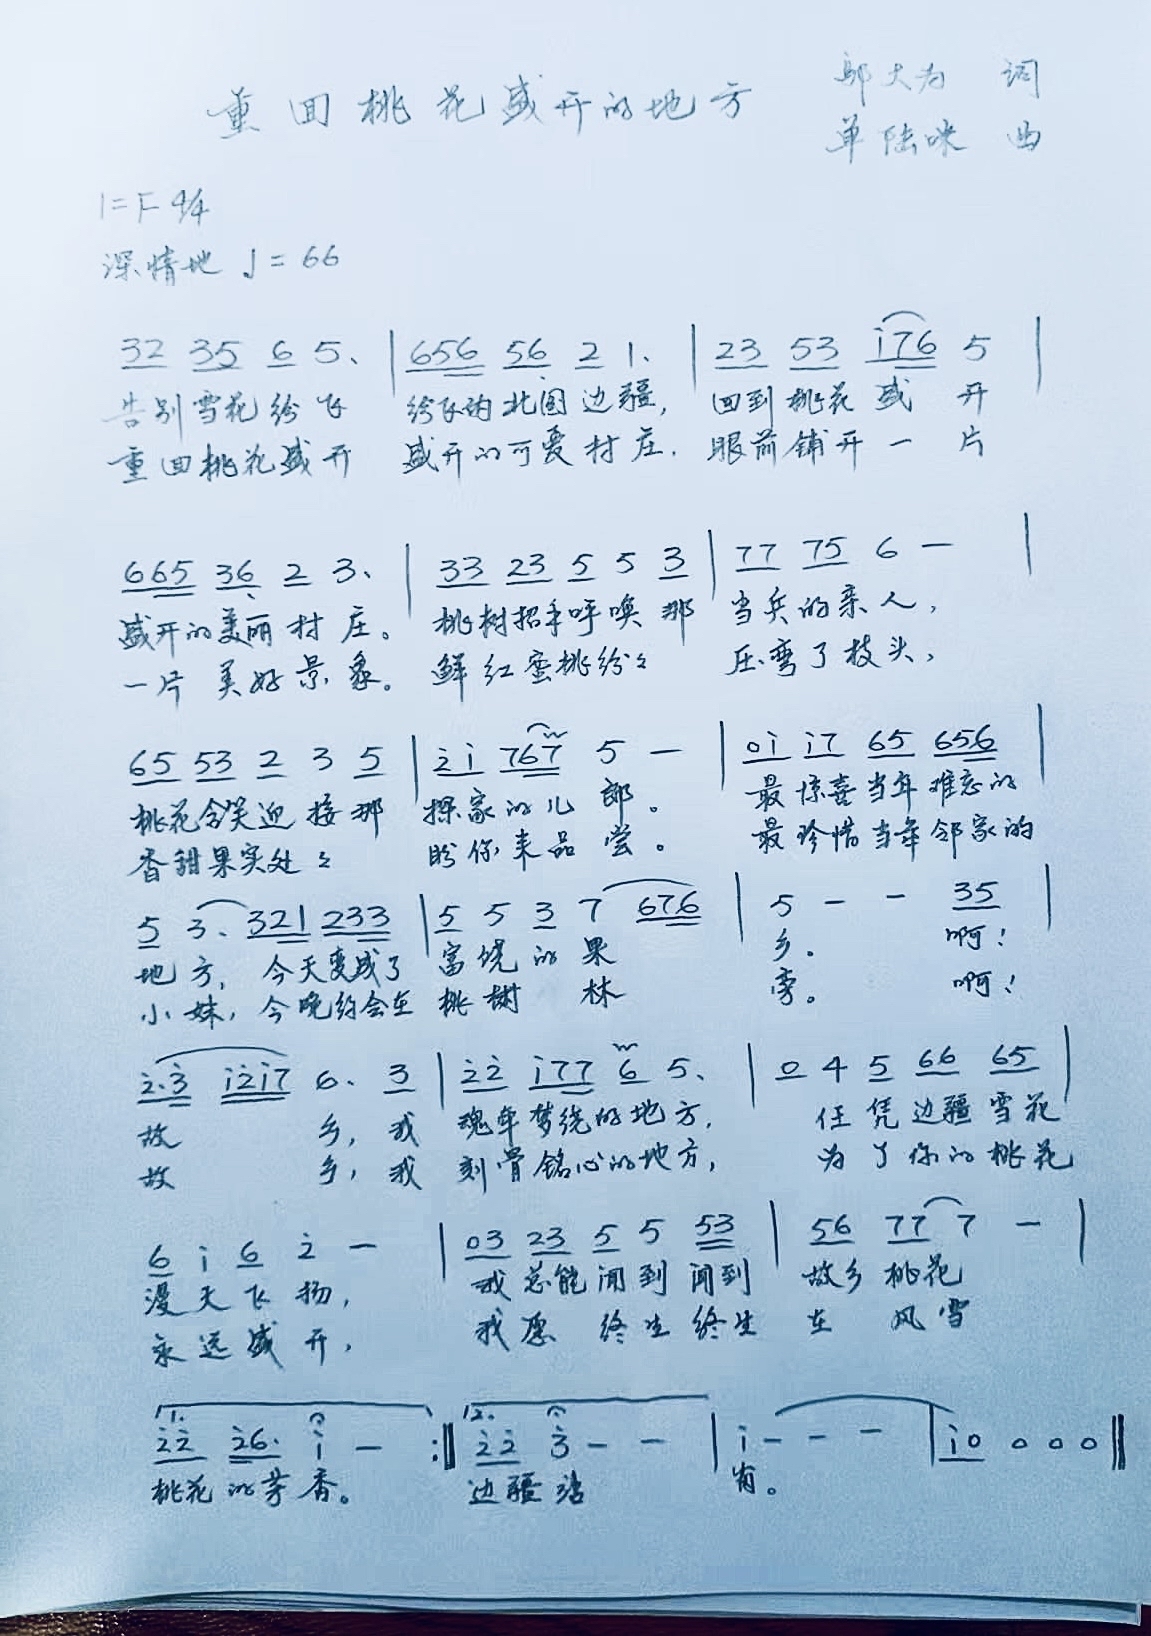 重回桃花盛开的地方
邬大为 词
单陆咪 曲
1=F 4/4
深情地 ♩=66
32 35 6 5. | 656 56 2 1. | 23 53 i76 5 |
告别雪花纷飞 纷飞的北国边疆, 回到桃花盛开
重回桃花盛开 盛开的可爱村庄. 眼前铺开一片
665 36 2 3. | 33 23 5 5 3 | 77 75 6 — |
盛开的美丽村庄。 桃树招手呼唤那 当兵的亲人,
一片美好景象。 鲜红蜜桃纷々 压弯了枝头,
65 53 2 3 5 | 2̇i 767 5 — | 0i i7 65 656 |
桃花含笑迎接那 探家的儿郎。 最惊喜当年难忘的
香甜果实处々 盼你来品尝。 最珍惜当年邻家的
5 3. 321 233 | 5 5 3 7 676 | 5 — — 35 |
地方, 今天变成了 富饶的果 乡。 啊!
小妹, 今晚约会在 桃树林 旁。 啊!
2̇.3̇ i2̇i7 6. 3 | 2̇2̇ i77 6 5. | 0 4 5 66 65 |
故乡, 我 魂牵梦绕的地方, 任凭边疆雪花
故乡, 我 刻骨铭心的地方, 为了你的桃花
6 i 6 2̇ — | 03 23 5 5 53 | 56 77 7 — |
漫天飞扬, 我总能闻到闻到 故乡桃花
永远盛开, 我愿终生终生 在风雪
1. 2̇2̇ 2̇6. i — :‖ 2. 2̇2̇ 3̇ — — | i — — — | i0 0 0 0 ‖
桃花的芳香。 边疆站 岗。